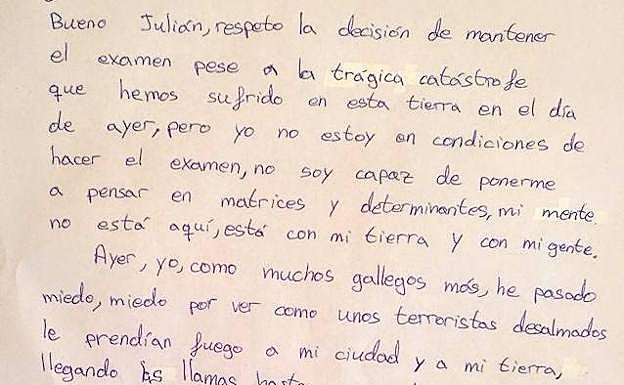 Bueno Julián, respeto la decisión de mantener
el examen pese a la trágica catástrofe
que hemos sufrido en esta tierra en el día
de ayer, pero yo no estoy en condiciones de
hacer el examen, no soy capaz de ponerme
a pensar en matrices y determinantes, mi mente
no está aquí, está con mi tierra y con mi gente.
Ayer, yo, como muchos gallegos más, he pasado
miedo, miedo por ver como unos terroristas desalmados
le prendían fuego a mi ciudad y a mi tierra,
llegando las llamas hasta